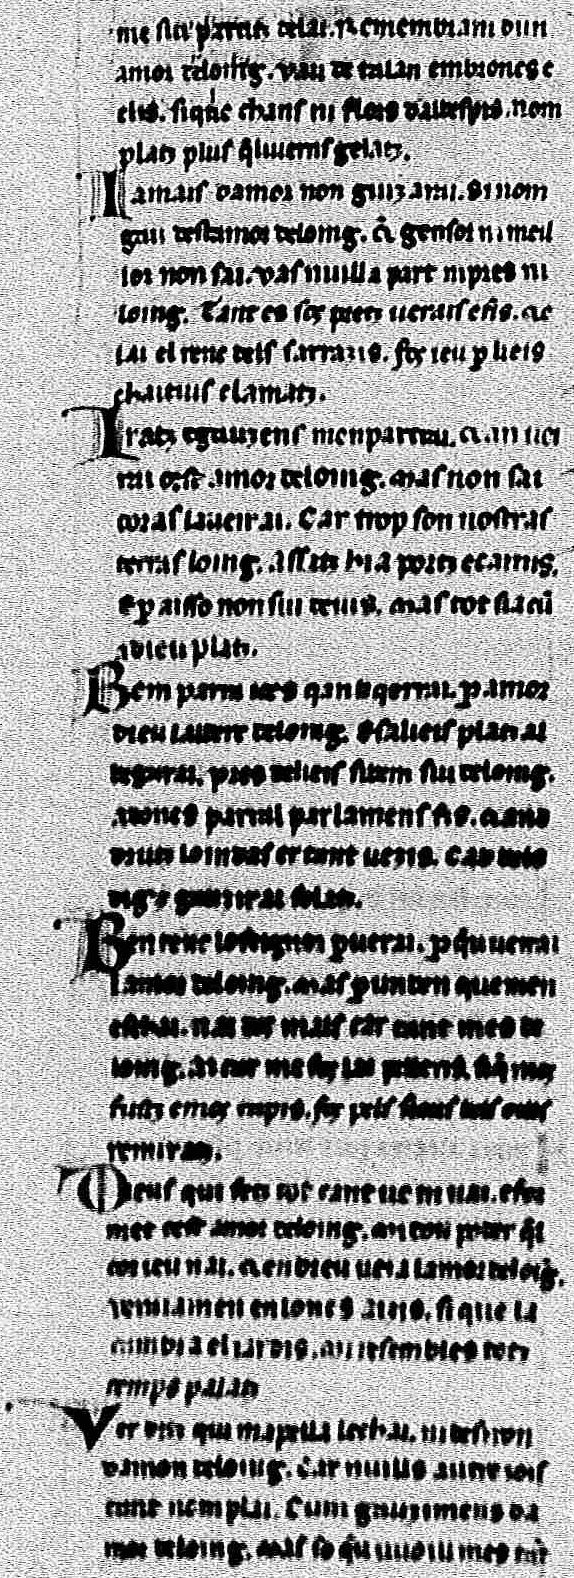 me sui partitz delai. Remembram dun
amor deloing. vau de talan embroncs e
clis. sique chans ni flors dalbespis. nom
platz plus qliuerns gelatz.
Iamais damor non gauzirai. si nom
gau destamor deloing. & gensor ni meil
lor non sai. vas nuilla part ni pres ni
loing. Tant es sos pretz uerais e fis. qe
lai el rene dels sarrazis. fos ieu p lieis
chaitius clamatz.
Iratz e gauzens men partrai. can uei
rai cest amor deloing. mas non sai
coras laueirai. Car trop son nostras
terras loing. Assatz hi a portz e camis,
E p aisso non sui deuis. mas tot sia cū
a dieu platz.
Bem parra iois qan li qerrai. p amor
dieu lalberc deloing. E salieis platz al
bergarai. pres de lieis si bem sui de loing.
Adoncs parral parlamens fis. cand
drutz loindas er tant uezis. Cab bels
digz gauzirai solatz.
Ben tenc lo seignor p uerai. p qu ueirai
lamor deloing. mas p un ben que men
eschai. nai dos mals car tant mes de
loing. Ai car me fos lai pelleris. si q mos
fustz e mos tapis. fos pels sieus bels oills
remiratz.
Dieus qui fetz tot cant ue ni uai. e for
met cest amor deloing. mi don poder ql
cor ieu nai. q en breu ueia lamor deloig.
veraiamen en loncs aizis. si que la
cambra el iardis. mi resembles totz
temps palatz
Ver ditz qui mapella lechai. ni desiron
damor deloing. Car nuills autre iois
tant nom plai. Cum gauzimens da
mor deloing. mas so qu uuoill mes tāt